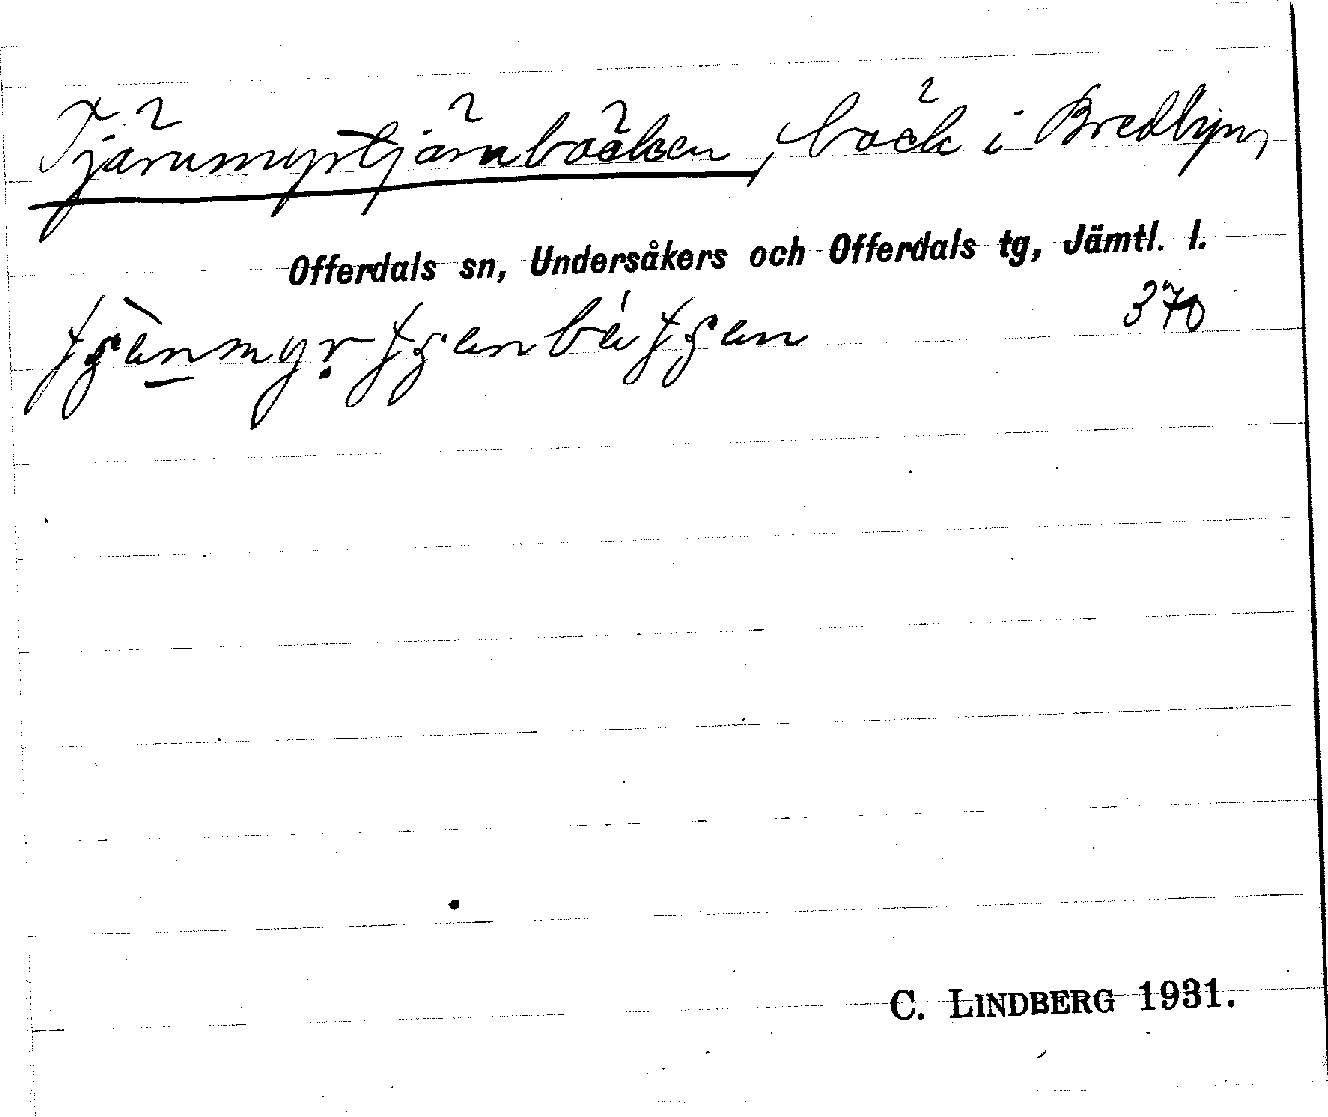 Tjärnmyrtjärnbäcken, bäck i Bredbyn,
Offerdals sn, Undersåkers och Offerdals tg, Jämtl. l.
370
C. LINDBERG 1931.